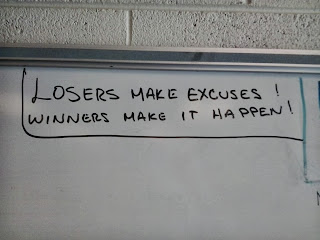 LOSERS MAKE EXCUSES !
WINNERS MAKE IT HAPPEN!